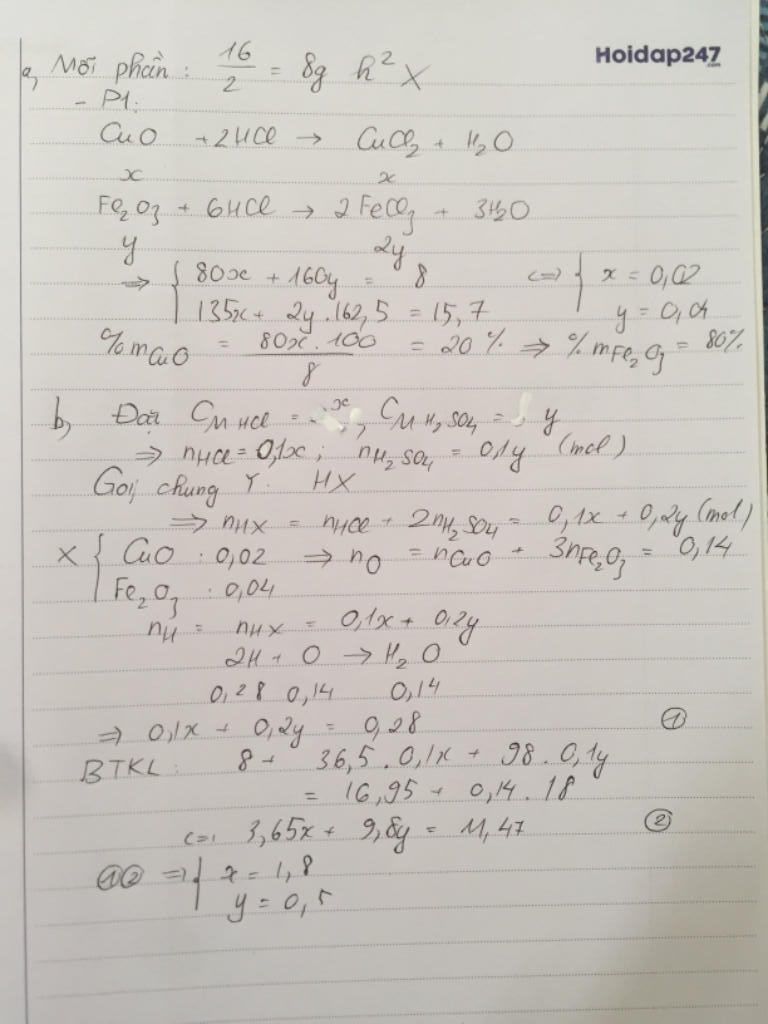 Hoidap247
.com
a, Mỗi phần : 16/2 = 8g h² X
- P1:
CuO + 2HCl → CuCl₂ + H₂O
x x
Fe₂O₃ + 6HCl → 2FeCl₃ + 3H₂O
y 2y
⇒ { 80x + 160y = 8 <=> { x = 0,02
135x + 2y.162,5 = 15,7 y = 0,04
%mCuO = 80x.100/8 = 20% ⇒ %mFe₂O₃ = 80%
b, Đặt CM HCl = x, CM H₂SO₄ = y
⇒ nHCl = 0,1x ; nH₂SO₄ = 0,1y (mol)
Gọi chung Y : HX
⇒ nHX = nHCl + 2nH₂SO₄ = 0,1x + 0,2y (mol)
X { CuO : 0,02 ⇒ nO = nCuO + 3nFe₂O₃ = 0,14
Fe₂O₃ : 0,04
nH = nHX = 0,1x + 0,2y
2H + O → H₂O
0,28 0,14 0,14
⇒ 0,1x + 0,2y = 0,28 ①
BTKL : 8 + 36,5.0,1x + 98.0,1y
= 16,95 + 0,14.18
<=> 3,65x + 9,8y = 11,47 ②
①② ⇒ { x = 1,8
y = 0,5